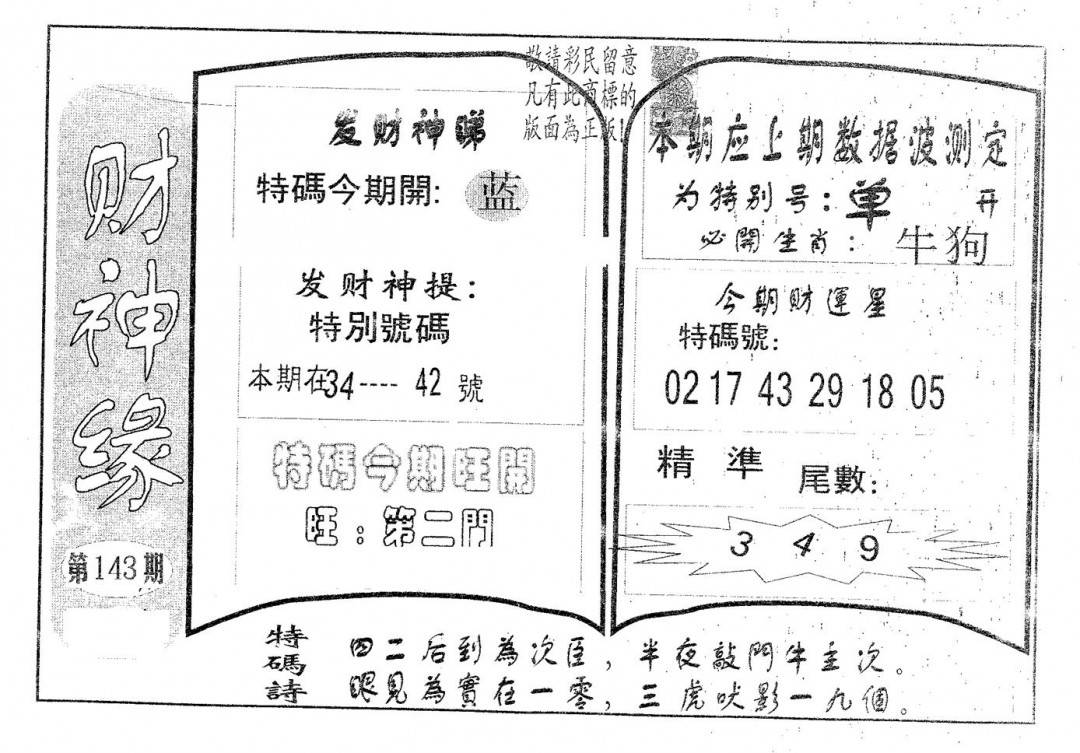 财神缘
第143期
敬請彩民留意
凡有此商標的
版面為正版!
发财神睇
特碼今期開: 蓝
发财神提:
特別號碼
本期在34---- 42 號
特碼今期旺開
旺:第二門
本期应上期数据波测定
为特别号:单 开
必開生肖: 牛狗
今期財運星
特碼號:
02 17 43 29 18 05
精準 尾數:
3 4 9
特碼詩
四二后到為次臣,半夜敲門牛主次。
眼見為實在一零,三虎吠影一九個。